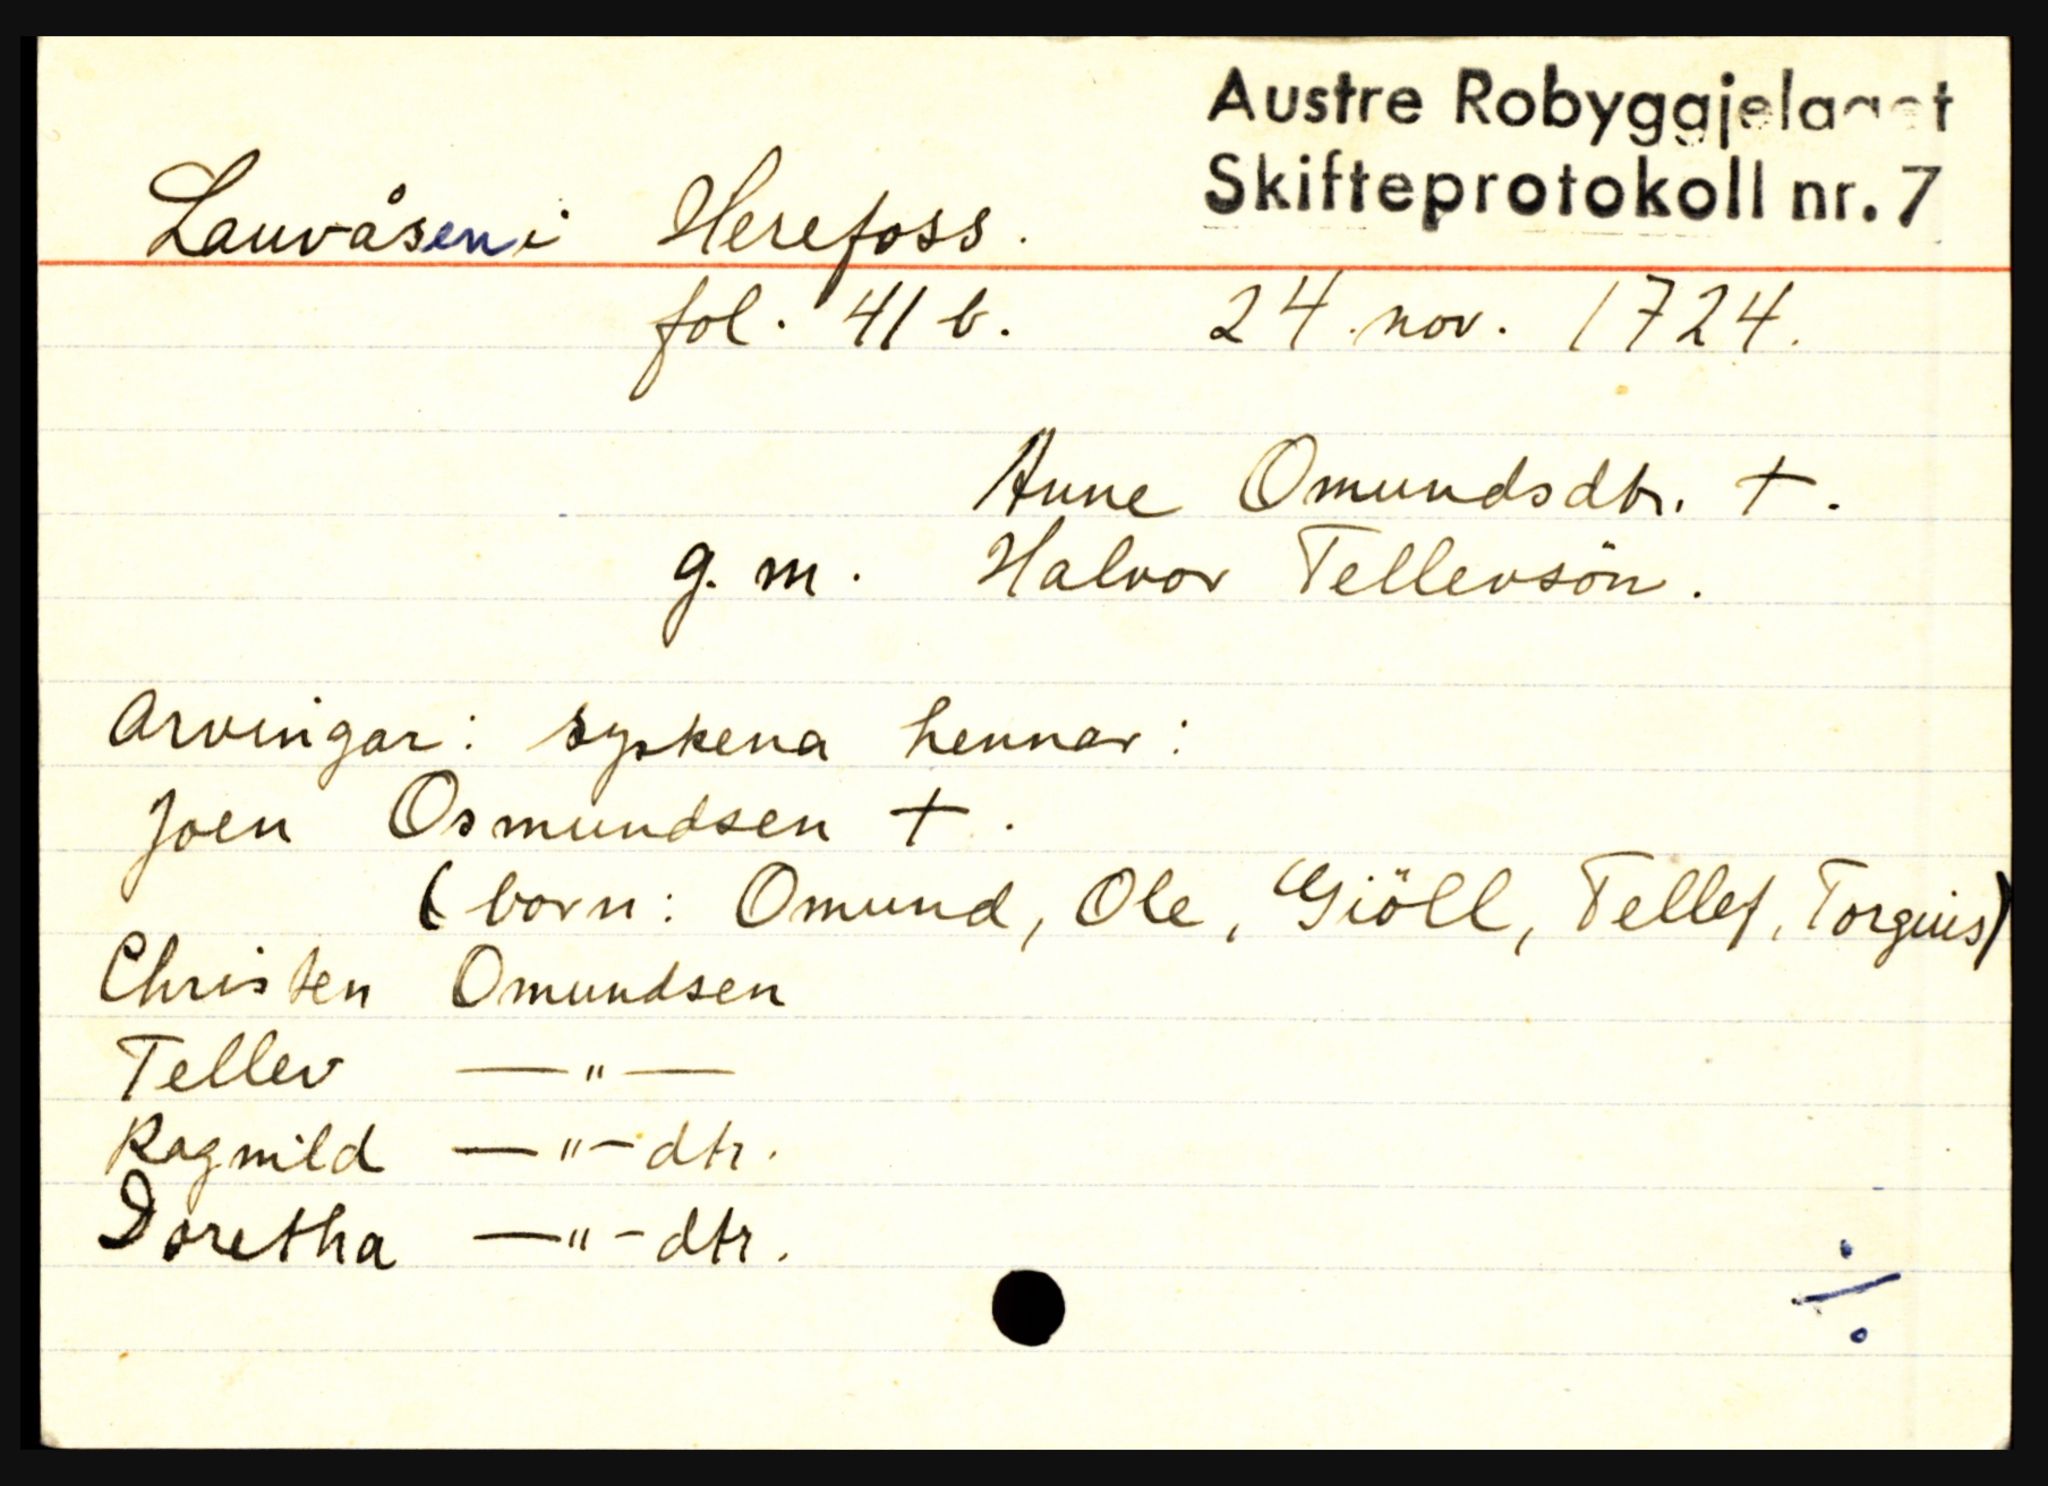 Austre Robyggjelaget
Skifteprotokoll nr. 7
Lauvåsen i Herefoss.
fol. 41 b. 24. nov. 1724.
Anne Omundsdtr. †.
g. m. Halvor Tellevsön.
Arvingar: syskena hennar:
Joen Osmundsen †.
(born: Omund, Ole, Giöll, Tellef, Torguis)
Christen Omundsen
Tellev —"—
Ragnild —"— dtr.
Doretha —"— dtr.
÷